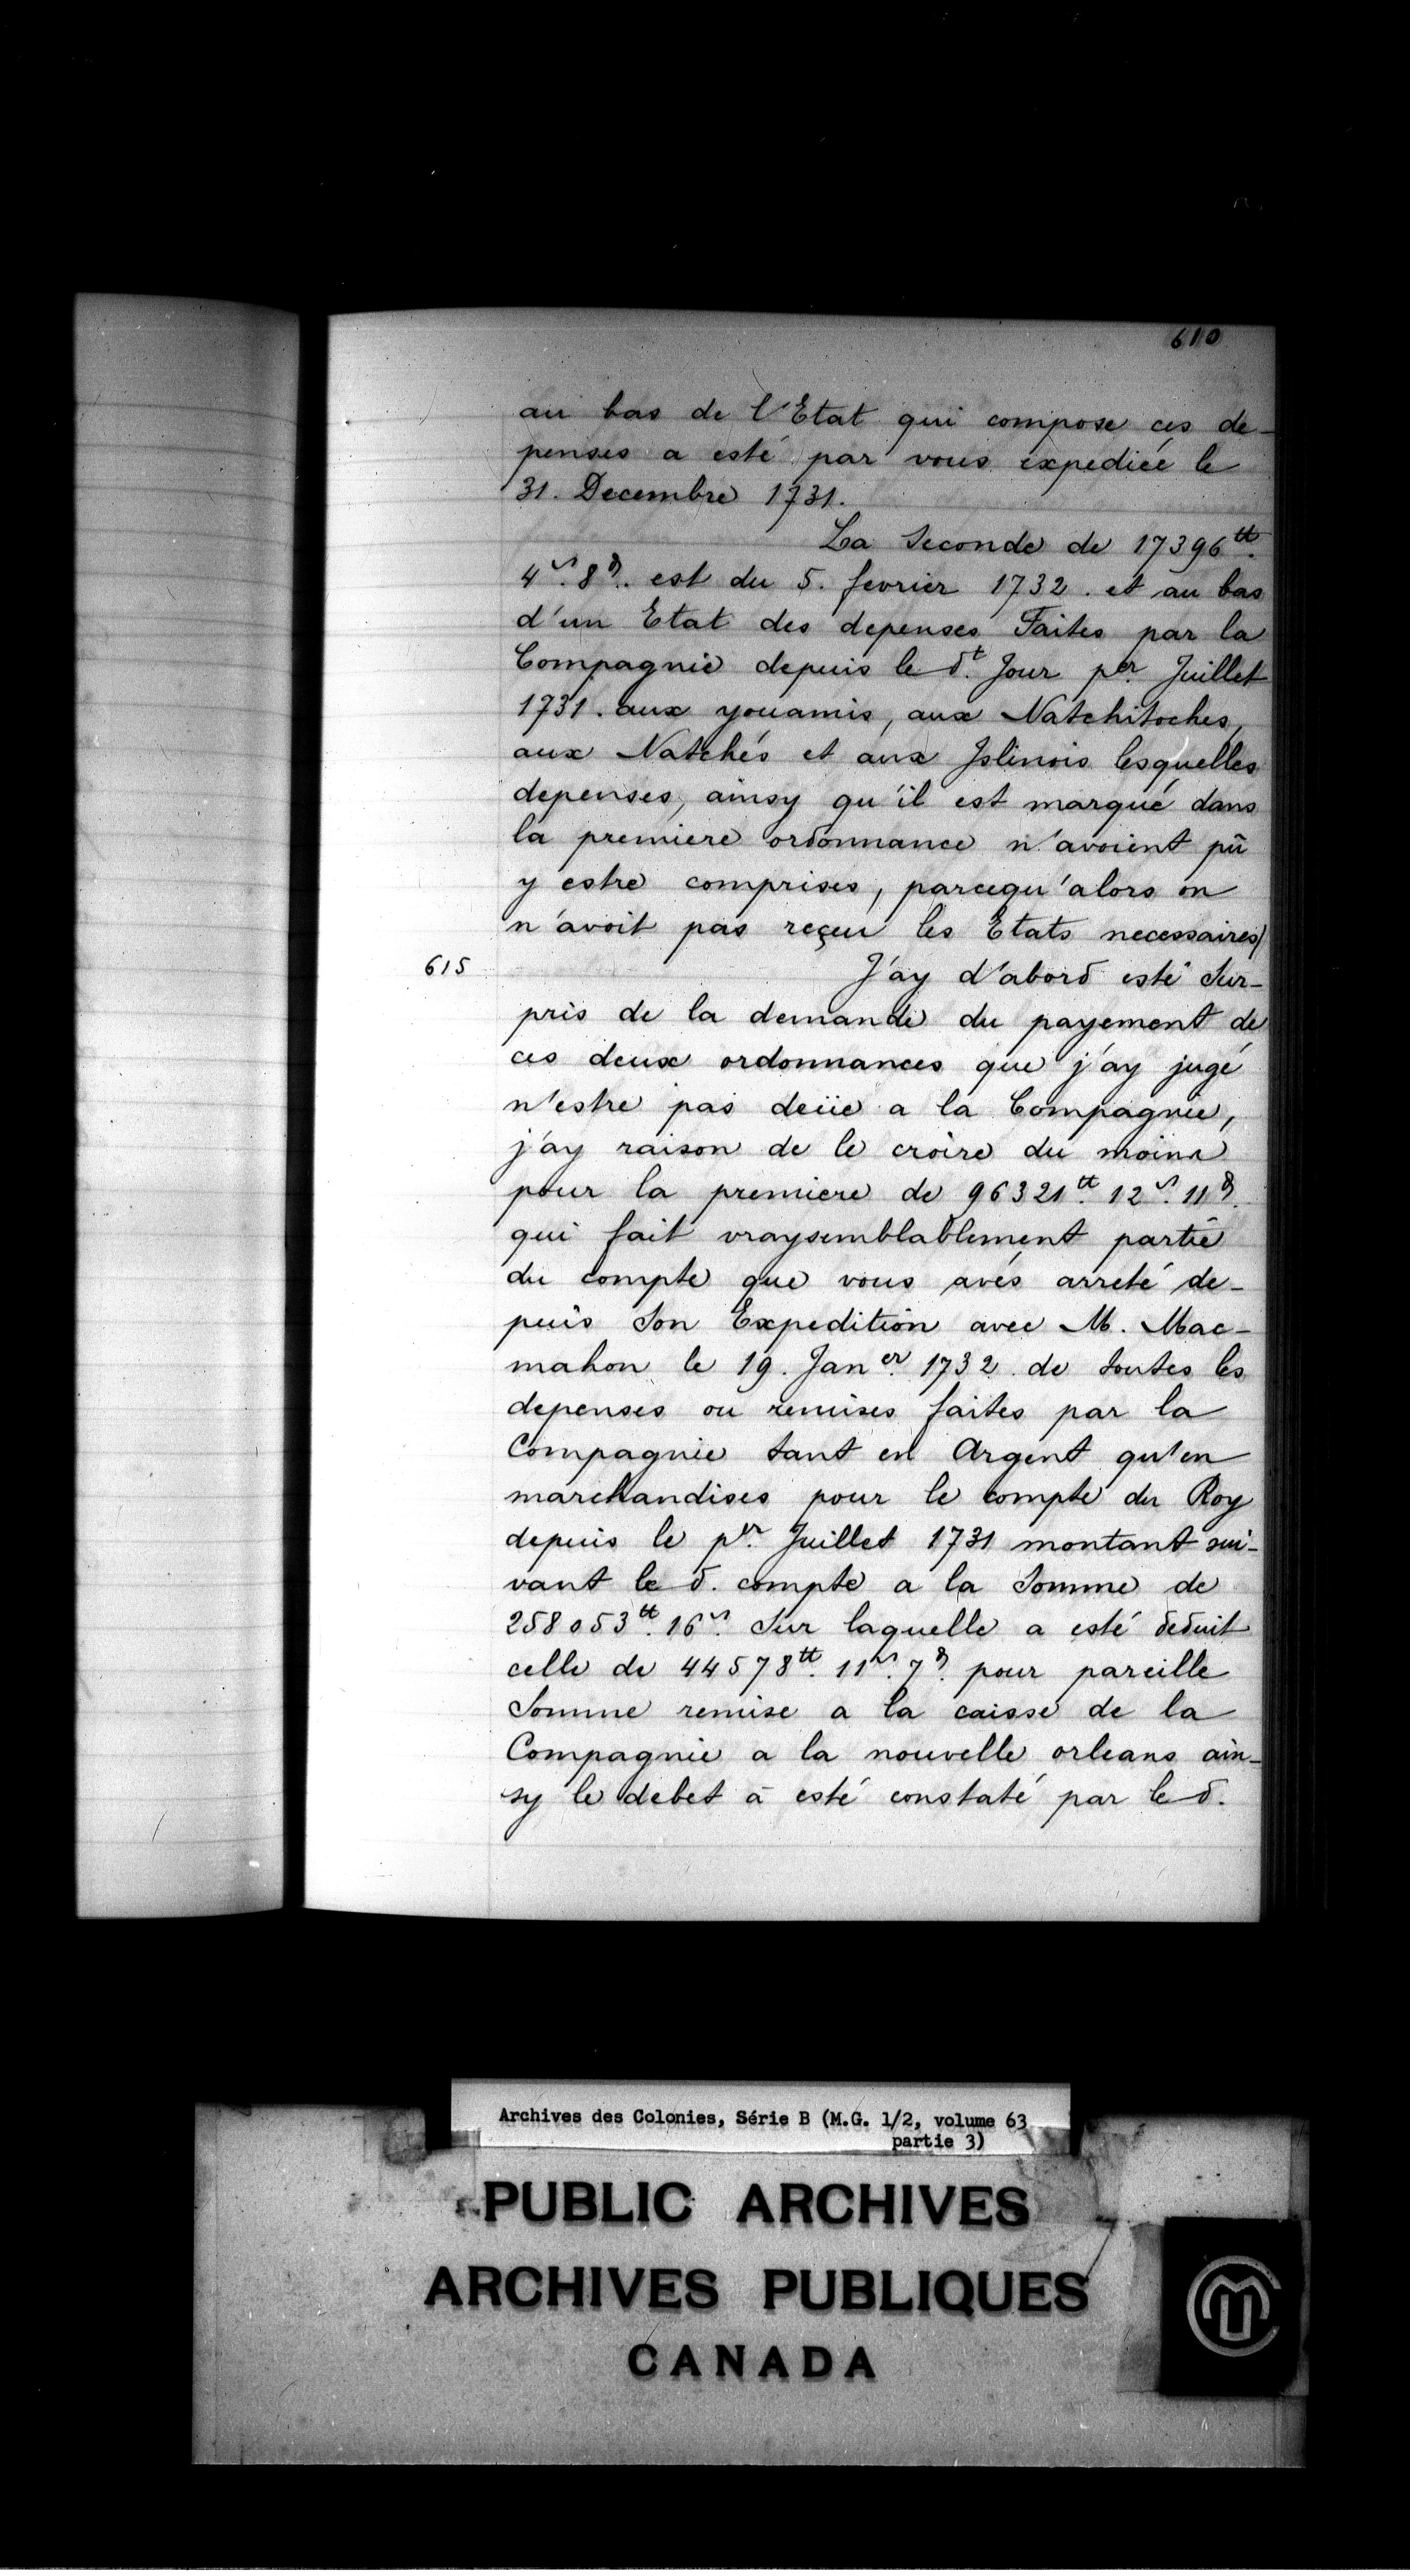 610
au bas de l'Etat qui compose ces de-
penses a esté par vous expediée le
31. Decembre 1731.
La Seconde de 17396tt.
4s. 8d. est du 5. fevrier 1732. et au bas
d'un Etat des depenses Faites par la
Compagnie depuis le dt. Jour per. Juillet
1731. aux youamis, aux Natchitoches,
aux Natchés et aux Jslinois lesquelles
depenses, ainsy qu'il est marqué dans
la premiere ordonnance n'avoient pû
y estre comprises, parcequ'alors on
n'avoit pas reçeu les Etats necessaires
615
J'ay d'abord esté Sur-
pris de la demande du payement de
ces deux ordonnances que j'ay jugé
n'estre pas deüe a la Compagnie,
j'ay raison de le croire du moins
pour la premiere de 96321tt. 12s. 11d.
qui fait vraysemblablement partie
du compte que vous avés arreté de-
puis Son Expedition avec M. Mac-
mahon le 19. Janer. 1732. de toutes les
depenses ou remises faites par la
Compagnie tant en Argent qu'en
marchandises pour le compte du Roy
depuis le per. Juillet 1731 montant sui-
vant le d. compte a la Somme de
258053tt. 16s. Sur laquelle a esté deduit
celle de 44578tt. 11s. 7d. pour pareille
Somme remise a la caisse de la
Compagnie a la nouvelle orleans ain-
sy le debet a esté constaté par le d.
Archives des Colonies, Série B (M.G. 1/2, volume 63
partie 3)
PUBLIC ARCHIVES
ARCHIVES PUBLIQUES
CANADA